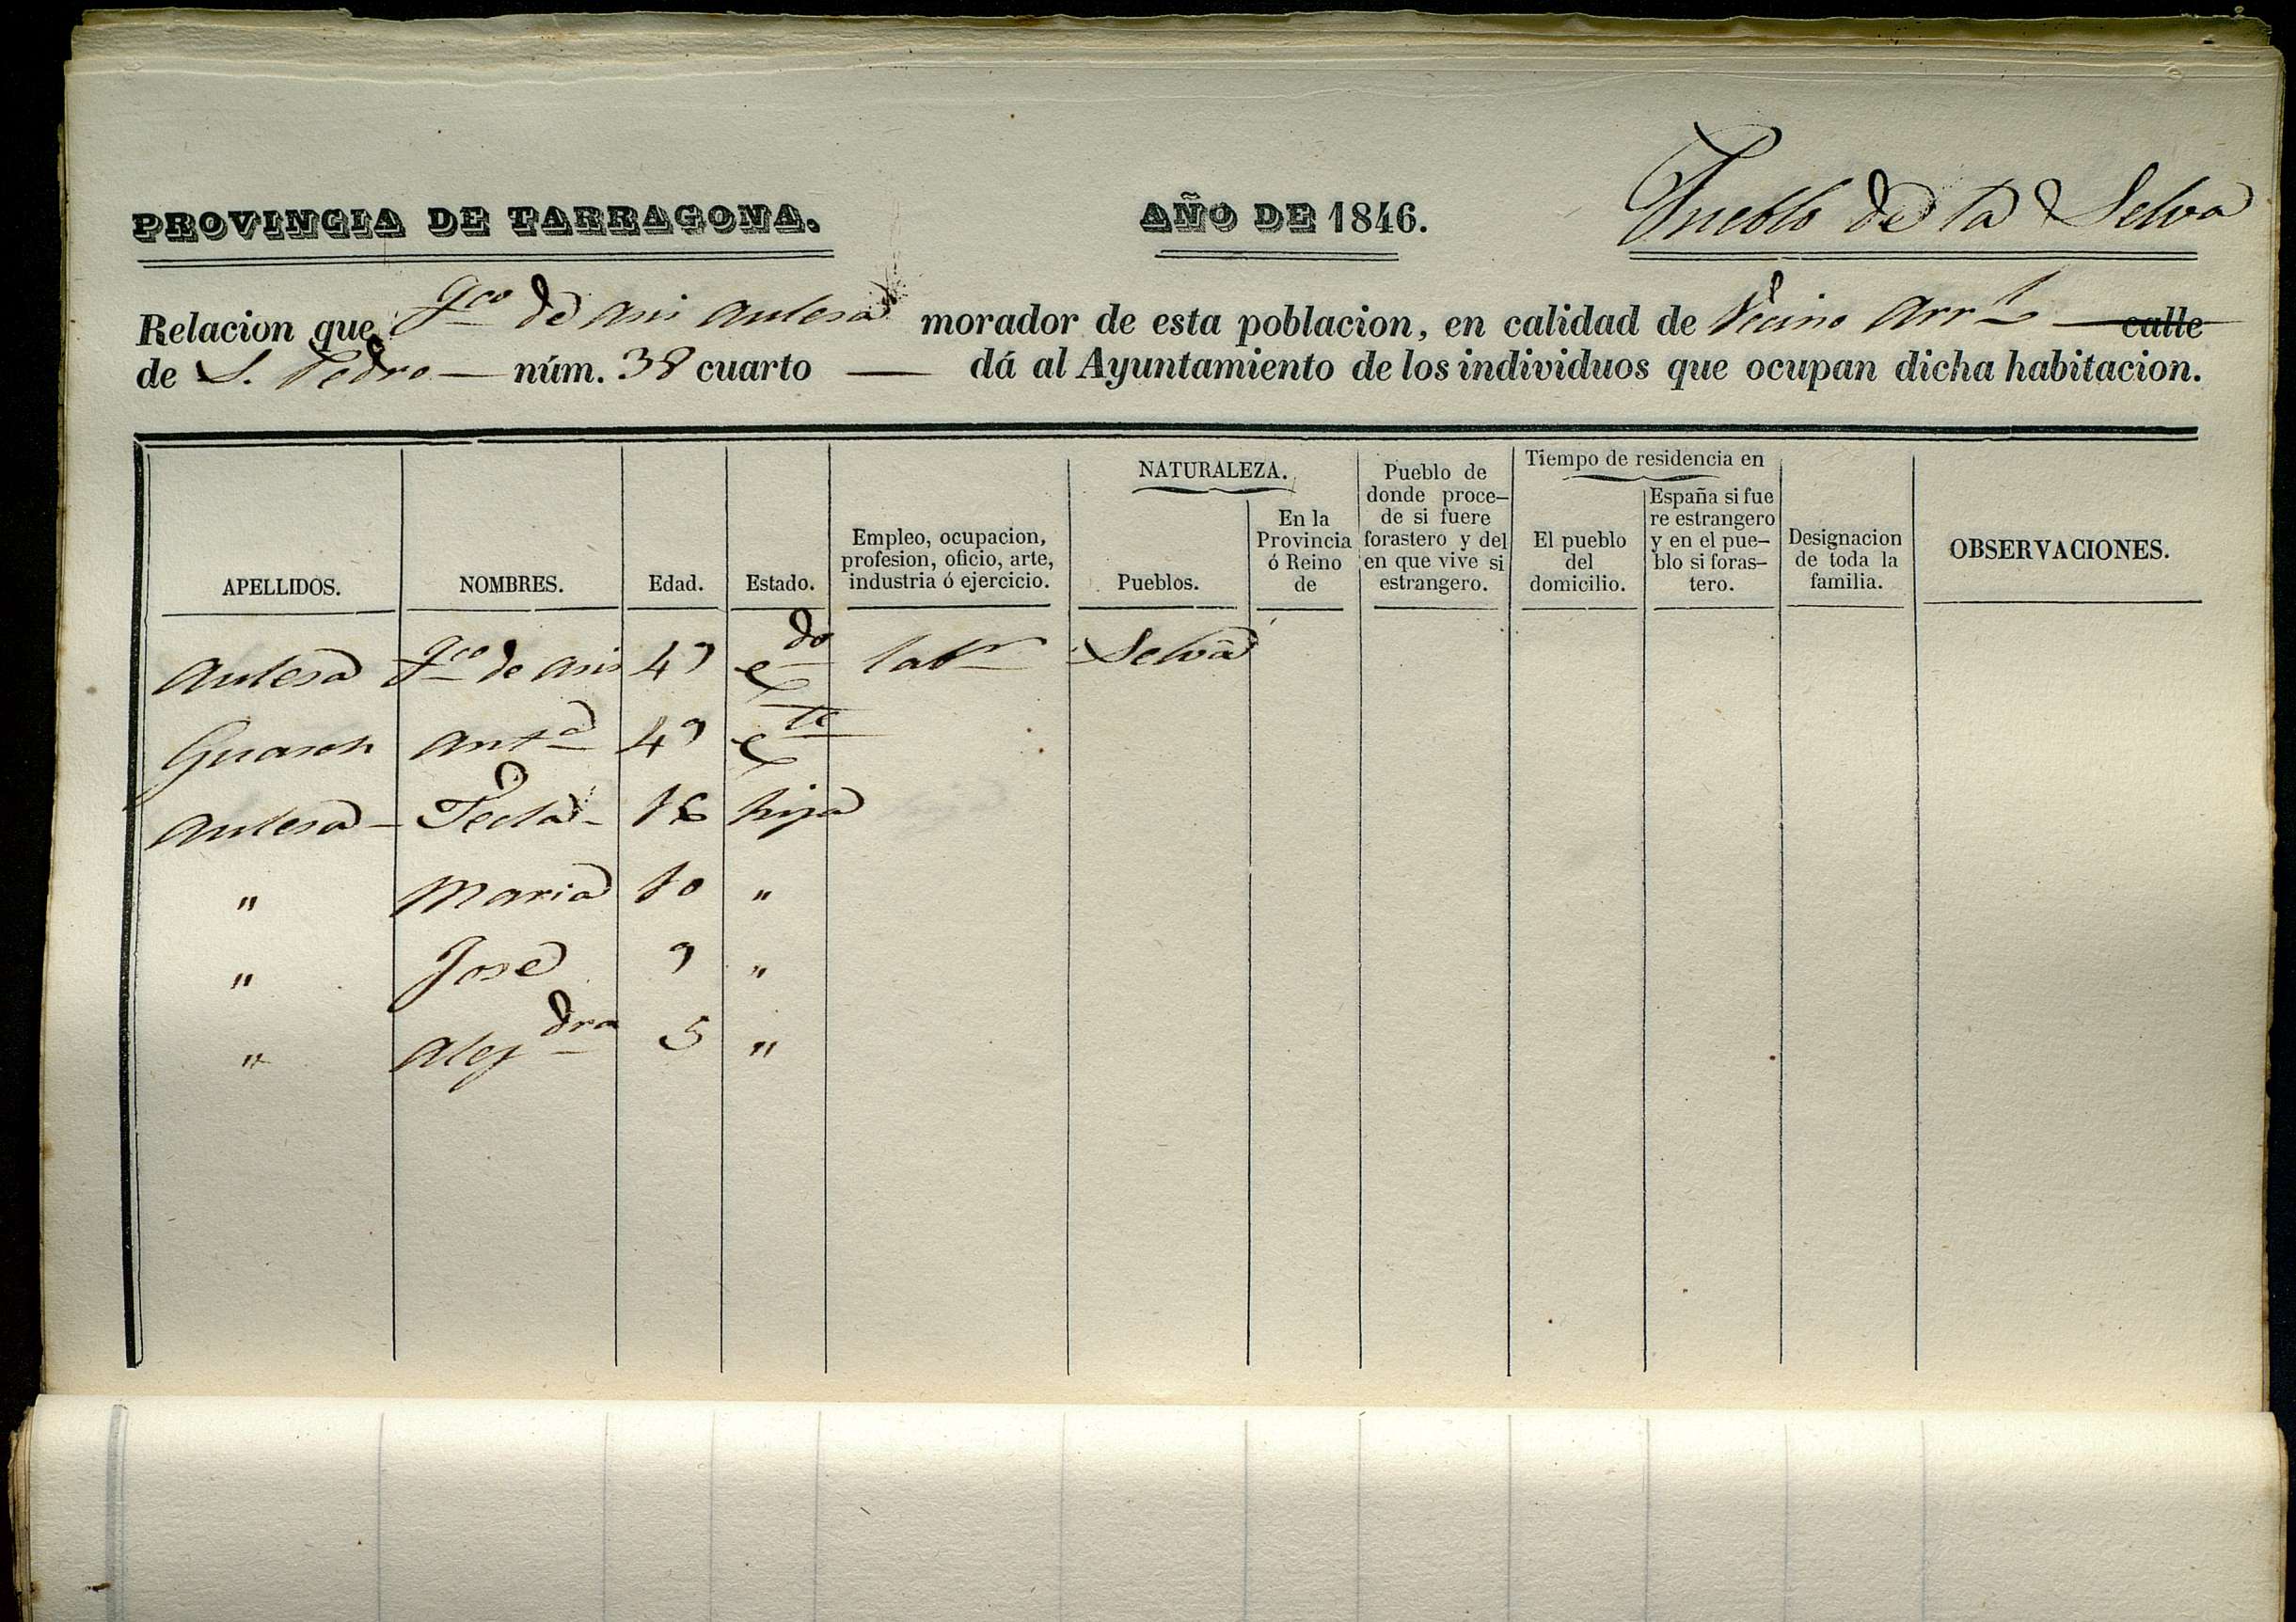 PROVINCIA DE TARRAGONA. AÑO DE 1846. Pueblo de la Selva
Relacion que Fco de Asis Aulesa morador de esta poblacion, en calidad de Vecino Arrl calle
de S. Pedro — núm. 38 cuarto — dá al Ayuntamiento de los individuos que ocupan dicha habitacion.
APELLIDOS.
NOMBRES.
Edad.
Estado.
Empleo, ocupacion,
profesion, oficio, arte,
industria ó ejercicio.
NATURALEZA.
Pueblos.
En la
Provincia
ó Reino
de
Pueblo de
donde proce-
de si fuere
forastero y del
en que vive si
estrangero.
Tiempo de residencia en
El pueblo
del
domicilio.
España si fue
re estrangero
y en el pue-
blo si foras-
tero.
Designacion
de toda la
familia.
OBSERVACIONES.
Aulesa Fco de Asis 49 cdo labr Selva
Guasch Anta 49 cte
Aulesa - Tecla - 16 hija
" Maria 10 "
" José 9 "
" Alejdra 5 "